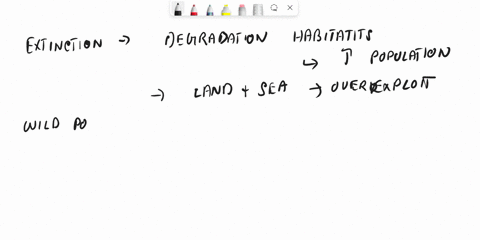 EXTINCTION → DEGRADATION HABITATITS
↳ ↑ POPULATION
→ LAND + SEA → OVEREXPLOIT
WILD PO